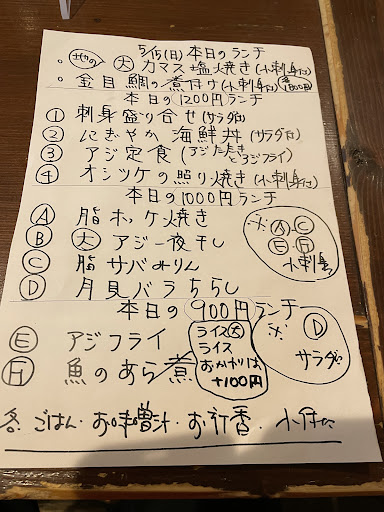 5/15(日)本日のランチ
地の 大 カマス塩焼き(小刺身付)
・金目鯛の煮付け(小刺身付) 各1800円
本日の1200円ランチ
① 刺身盛り合せ(サラダ付)
② にぎやか海鮮丼(サラダ付)
③ アジ定食(アジたたきとアジフライ)
④ オシツケの照り焼き(小刺身付)
本日の1000円ランチ
Ⓐ 脂ホッケ焼き
Ⓑ 大 アジ一夜干し
Ⓒ 脂サバみりん
Ⓓ 月見バラちらし
※Ⓐ~Ⓒ
Ⓔ・Ⓕ
小刺身
本日の900円ランチ
Ⓔ アジフライ
Ⓕ 魚のあら煮
ライス大
ライス
おかわりは
+100円
※ Ⓓ
サラダ付
各 ごはん・お味噌汁・お新香・小付た